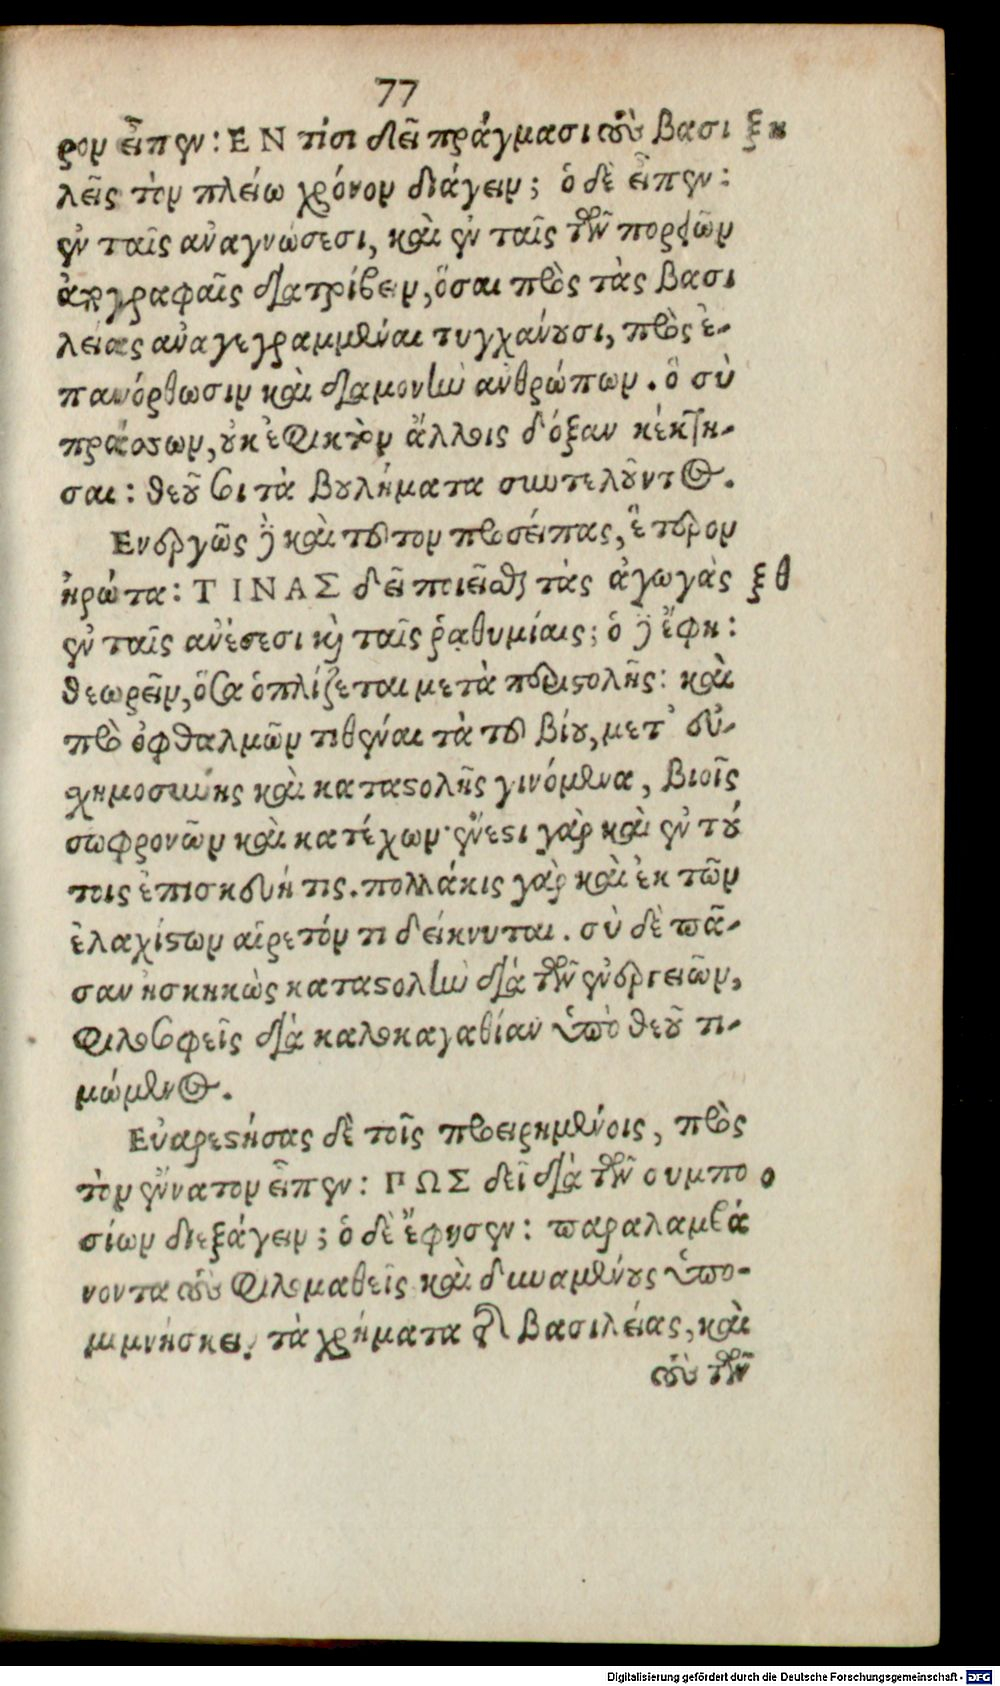 77
ρον εἶπεν: ΕΝ τίσι δεῖ πράγμασι τοὺς βασι ξη
λεῖς τὸν πλείω χρόνον διάγειν; ὁ δὲ εἶπεν:
ἐν ταῖς ἀναγνώσεσι, καὶ ἐν ταῖς τῶν πορειῶν
ἀπογραφαῖς διατρίβειν, ὅσαι πρὸς τὰς βασι
λείας ἀναγεγραμμέναι τυγχάνουσι, πρὸς ἐ-
πανόρθωσιν καὶ διαμονὴν ἀνθρώπων. ὃ σὺ
πράσσων, οὐκ ἐφικτὸν ἄλλοις δόξαν κέκτη-
σαι: θεοῦ σοι τὰ βουλήματα συντελοῦντος.
Ενεργῶς δὲ καὶ τοῦτον προσείπας, ἕτερον
ἠρώτα: ΤΙΝΑΣ δεῖ ποιεῖσθαι τὰς ἀγωγὰς ξθ
ἐν ταῖς ἀνέσεσι καὶ ταῖς ῥαθυμίαις; ὁ δὲ ἔφη:
θεωρεῖν, ὅσα ὁπλίζεται μετὰ περιστολῆς: καὶ
πρὸ ὀφθαλμῶν τιθέναι τὰ τοῦ βίου, μετ' εὐ-
σχημοσύνης καὶ καταστολῆς γινόμενα, βιοῖς
σωφρονῶν καὶ κατέχων· ἔνεστι γὰρ καὶ ἐν τού
τοις ἐπισκευή τις. πολλάκις γὰρ καὶ ἐκ τῶν
ἐλαχίστων αἱρετόν τι δείκνυται. σὺ δὲ πᾶ-
σαν ἠσκηκὼς καταστολὴν διὰ τῶν ἐνεργειῶν,
φιλοσοφεῖς διὰ καλοκαγαθίαν ὑπὸ θεοῦ τι-
μώμενος.
Εὐαρεστήσας δὲ τοῖς προειρημένοις, πρὸς
τὸν ἔννατον εἶπεν: ΠΩΣ δεῖ διὰ τῶν συμπο ο
σίων διεξάγειν; ὁ δὲ ἔφησεν: παραλαμβά
νοντα τοὺς φιλομαθεῖς καὶ δυναμένους ὑπο-
μιμνήσκειν τὰ χρήματα τῆς βασιλείας, καὶ
τοὺς τῶν
Digitalisierung gefördert durch die Deutsche Forschungsgemeinschaft - DFG